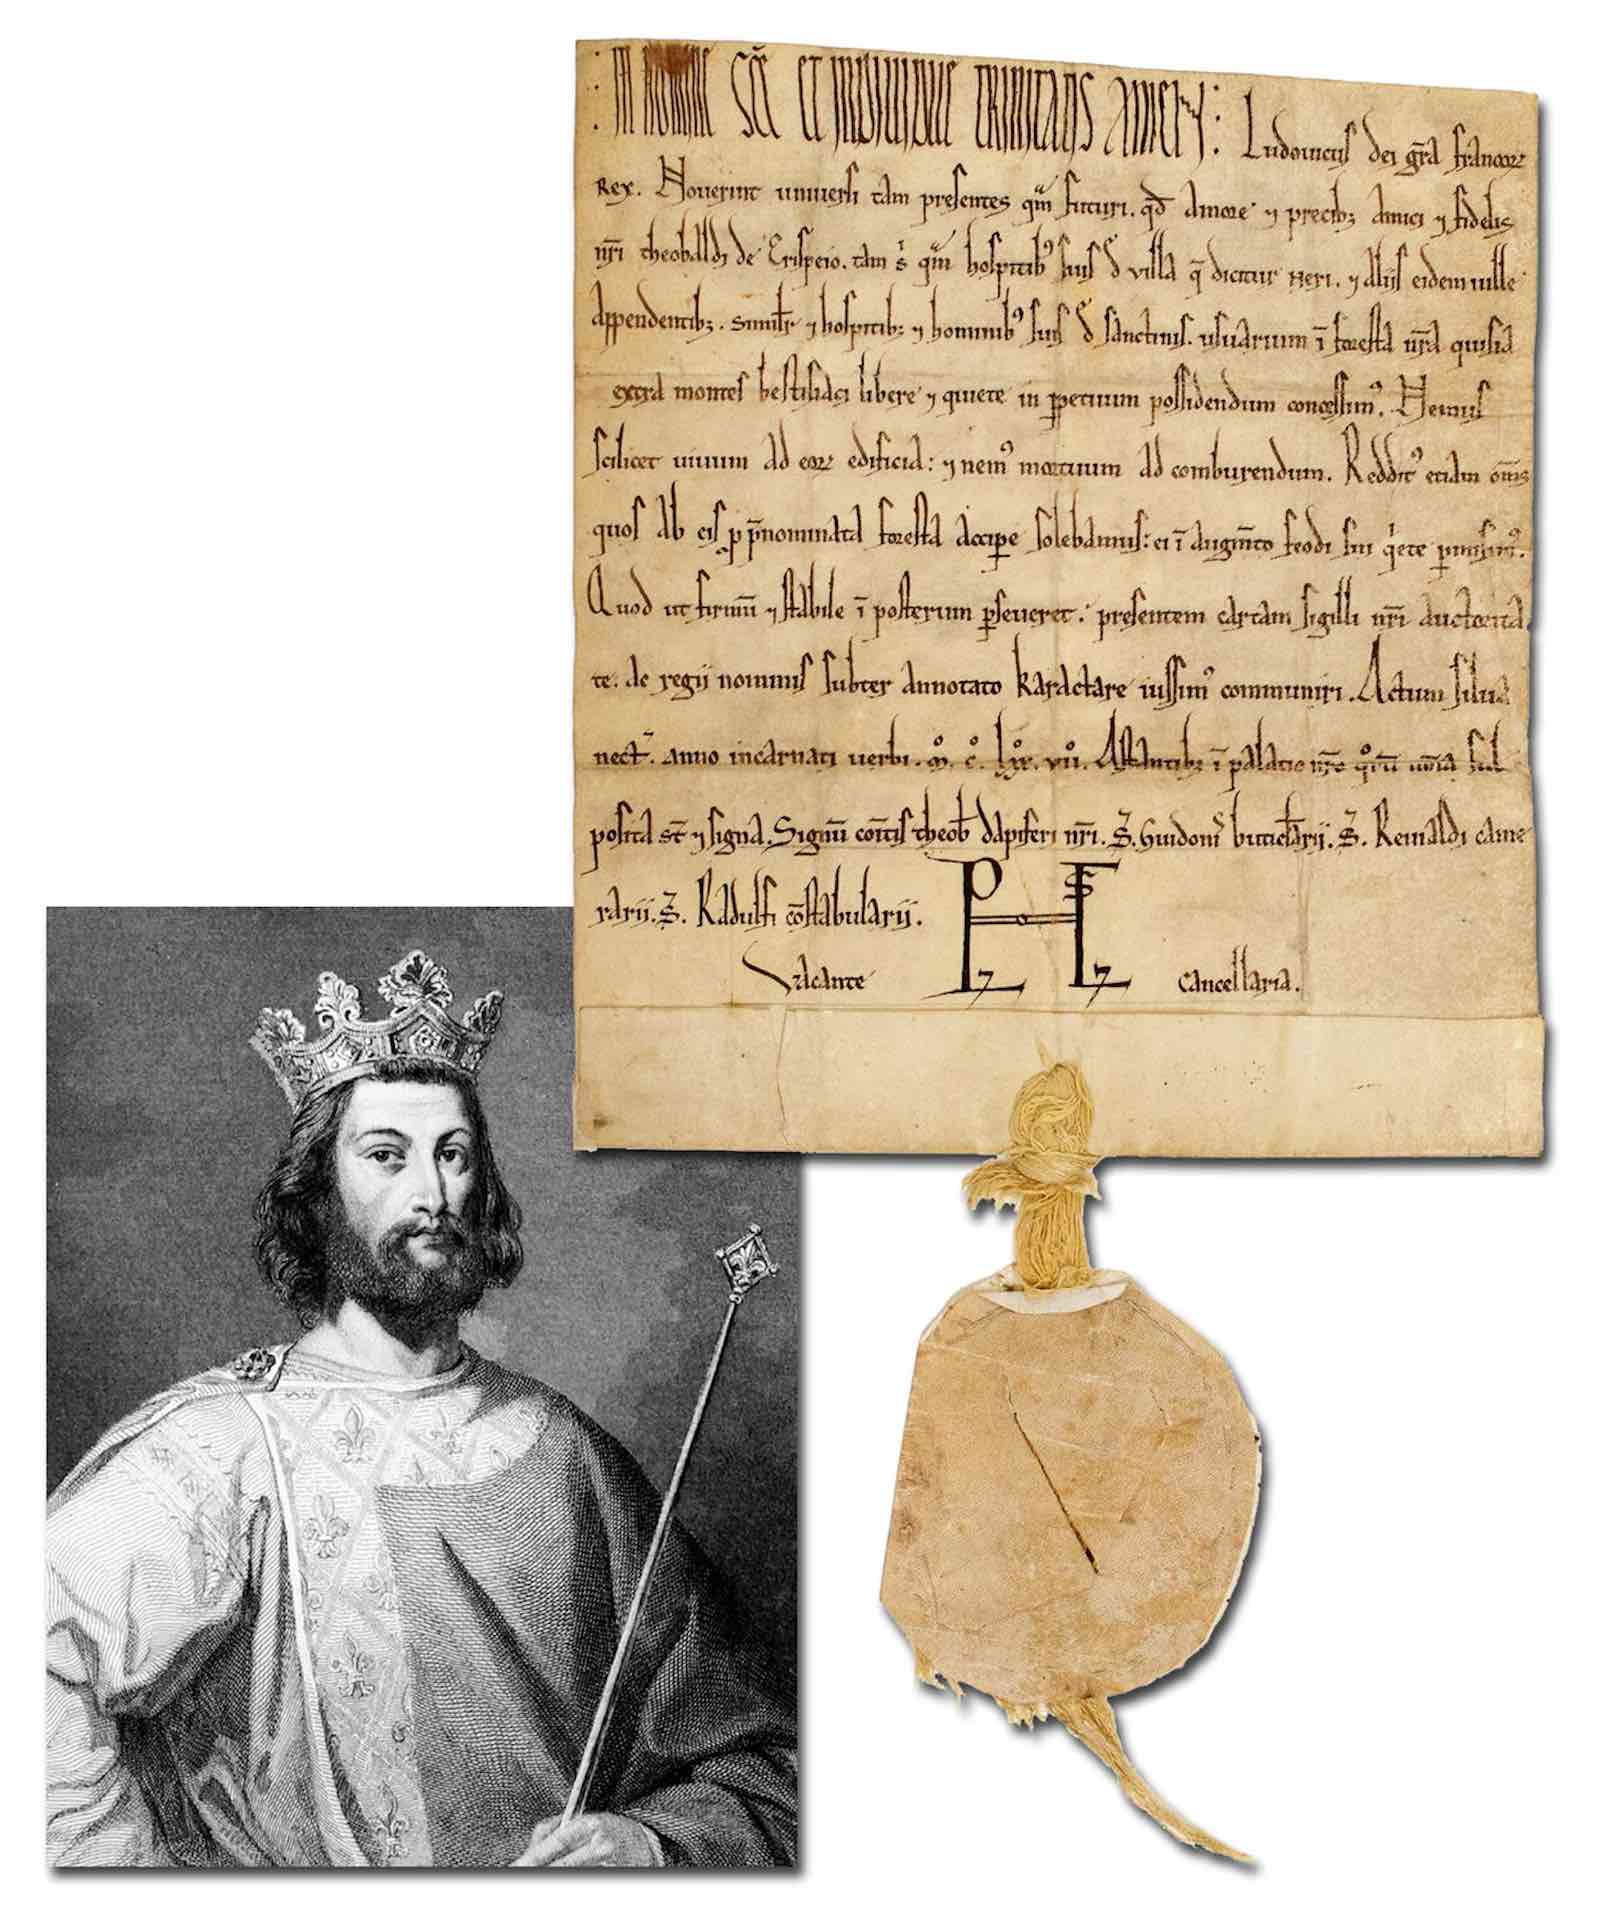 : IN NOMINE SCE ET INDIVIDUE TRINITATIS AMEN : Ludovicus dei gra francor
Rex. Noverint universi tam presentes qm futuri. qd amore & precib; amici & fidelis
nri theobaldi de Crispeio. tam s qm hospitib; suis d villa q dicitur Neri. & aliis eidem ville
appendentib;. similr & hospitib; & hominib; suis d sanctinis. usuarium i foresta nra quisia
extra montes bestisiaci libere & quiete in ppetuum possidendum concessim;. Nemus
scilicet vivum ad eor edificia: & nem; mortuum ad comburendum. Reddit; etiam oms
quos ab eis p pnominata foresta accipe solebamus: ei i augmto feodi sui qete
Quod ut firmu & stabile i posterum pseveret: presentem cartam sigilli nri auctorita
te. de regii nominis subter annotato karactare iussim; communiri. Actum silva
nect. anno incarnati verbi. m. c. lx. vii. Astantib; i palatio nro qru noia sub
posita st & signa. Signu comtis theob dapiferi nri. S. Guidonis buticlarii. S. Reinaldi came
rarii. S. Radulfi costabularii.
Vacante Cancellaria.